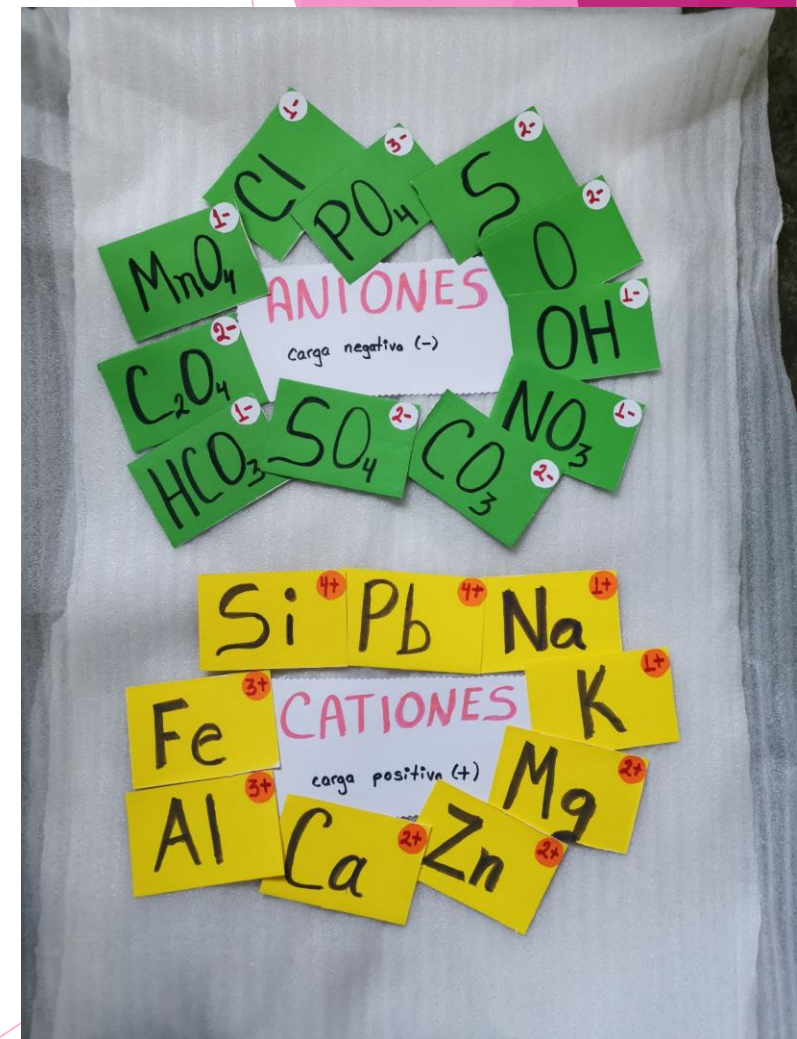 Cl 1-
PO₄ 3-
S 2-
MnO₄ 1-
O 2-
ANIONES
carga negativa (-)
OH 1-
C₂O₄ 2-
NO₃ 1-
HCO₃ 1-
SO₄ 2-
CO₃ 2-
Si 4+
Pb 4+
Na 1+
Fe 3+
CATIONES
carga positiva (+)
K 1+
Al 3+
Mg 2+
Ca 2+
Zn 2+